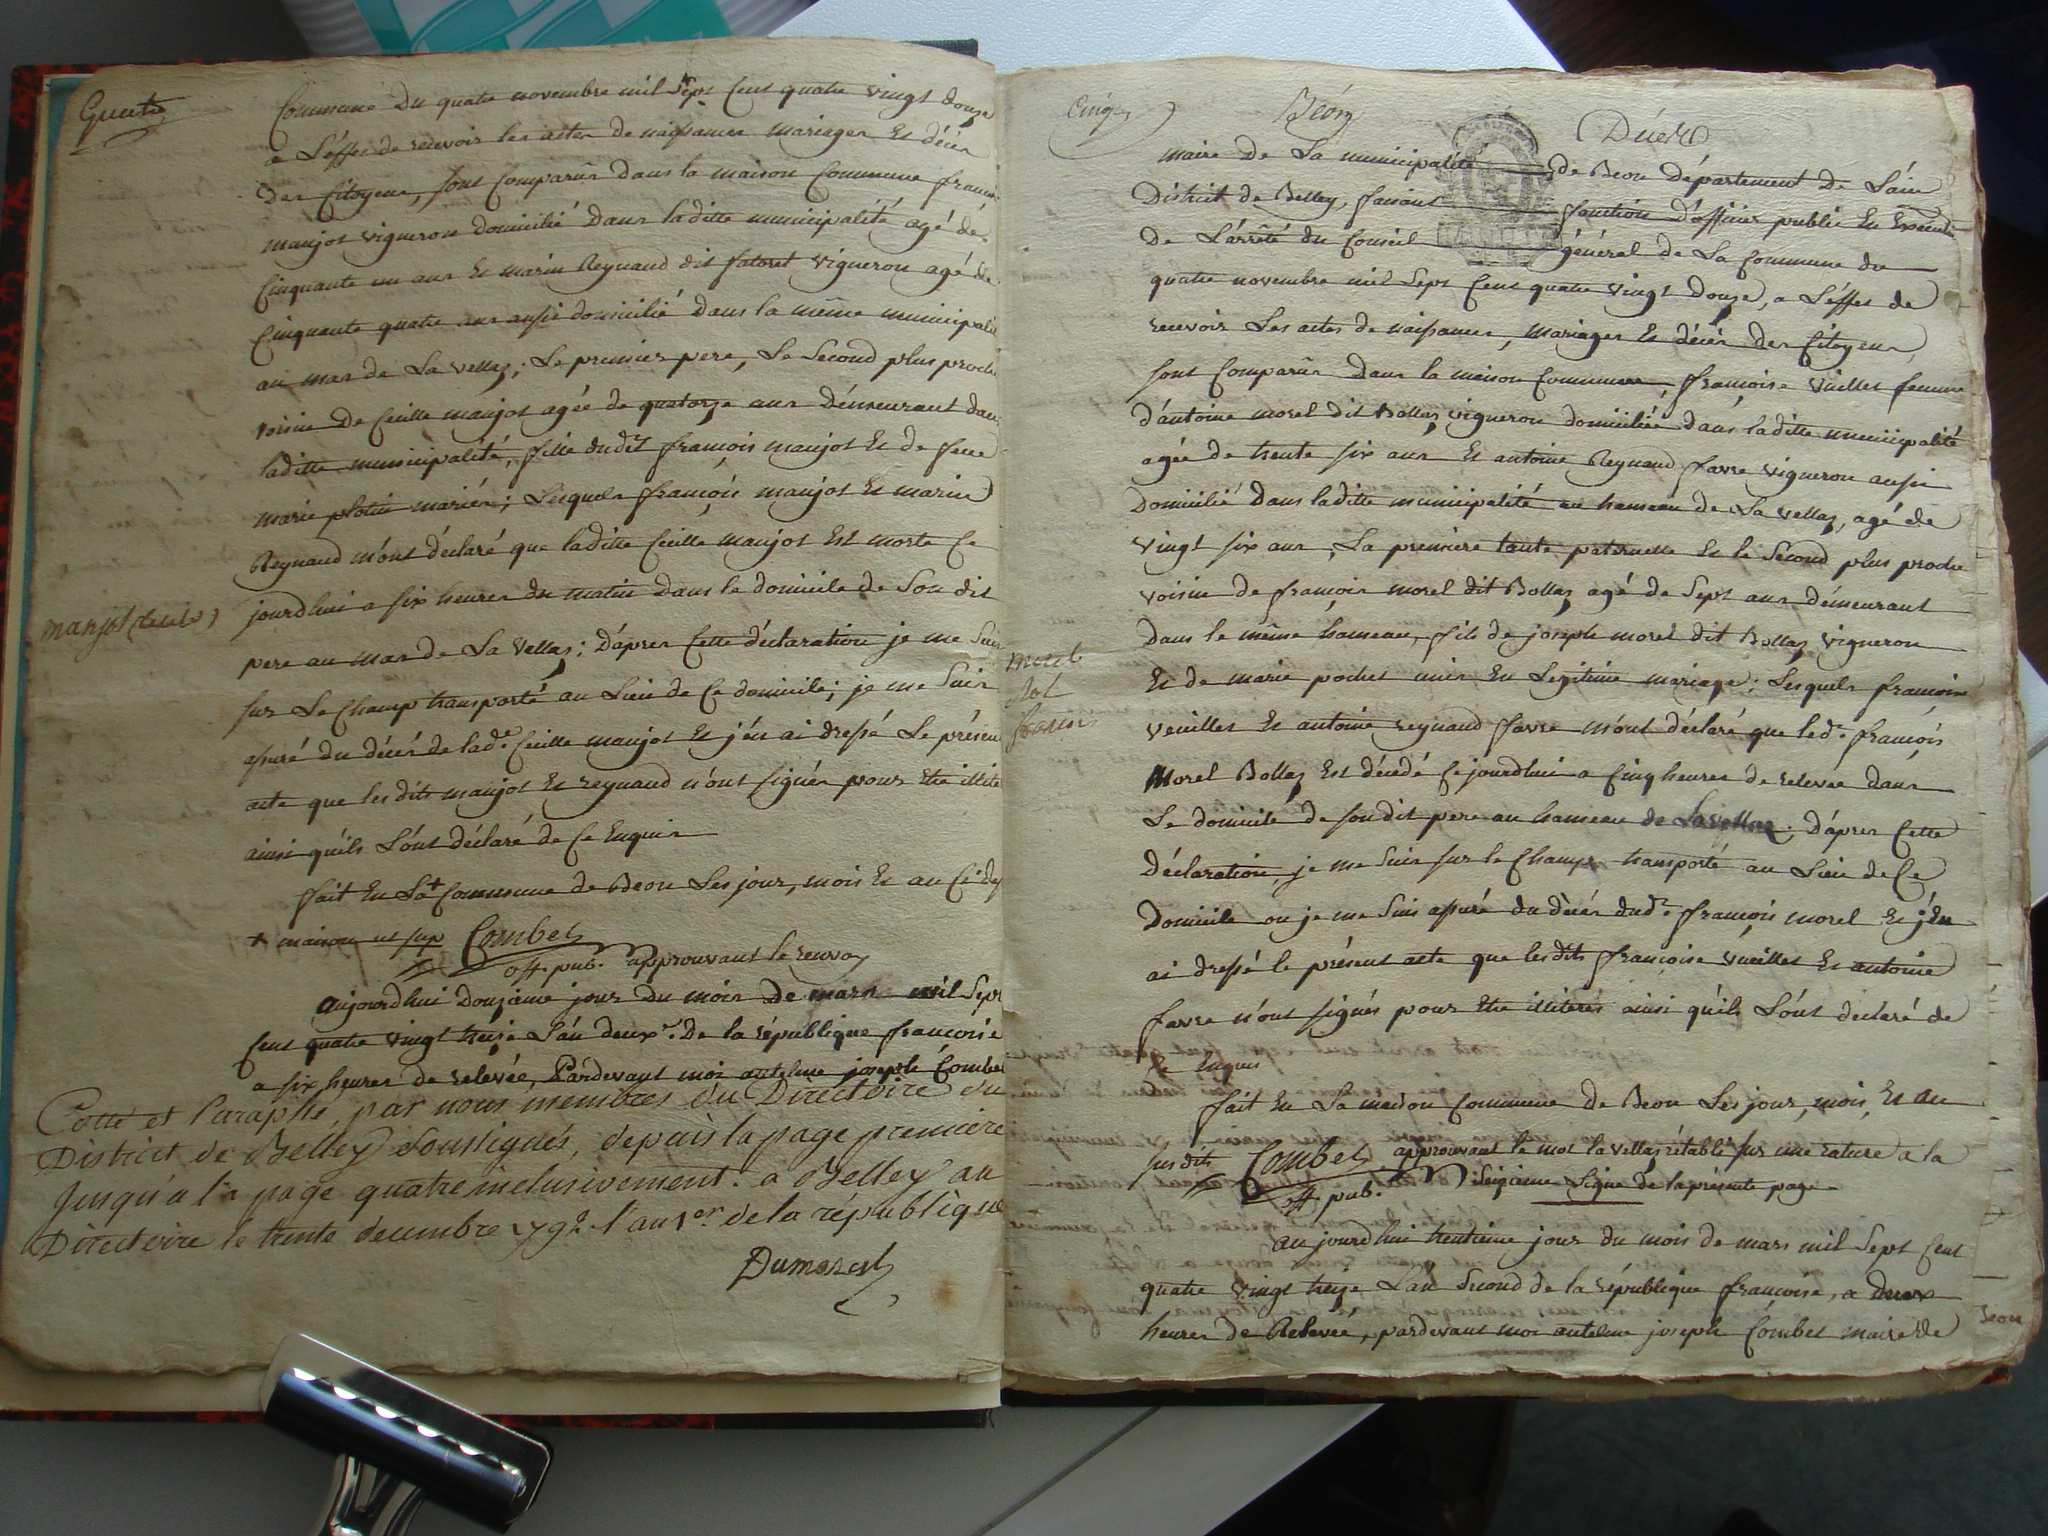 Commune du quatre novembre mil sept cent quatre vingt douze
a L'éffet de recevoir les actes de naissances mariages Et décès
des Citoyens, sont Comparûs dans la maison Commune françois
maujot vigneron domicilié dans laditte municipalité agé de
Cinquante un ans Et marin Reynaud dit fatoret vigneron agé de
Cinquante quatre ans aussi domicilié dans la même municipalité
au mas de La vellaz; Le premier pere, Le Second plus proche
voisin de Cecille maujot agée de quatorze ans démeurant dans
laditte municipalité, fille dudt françois maujot Et de feue
marie plotin mariés; Lesquels françois maujot Et marin
Reynaud m'ont déclaré que laditte Cecille maujot Est morte Ce
jourdhui a six heures du matin dans le domicile de Son dit
manjot (cecile)
pere au mas de La Vellaz; D'apres Cette déclaration je me Suis
sur Le Champ transporté au Lieu de Ce domicile; je me Suis
assuré du décès de lade. Cecille maujot Et j'en ai dressé Le présent
acte que les dits maujot Et reynaud n'ont signés pour Etre illité
ainsi qu'ils L'ont déclaré de Ce Enquis
fait En La + Commune de Beon Les jour, mois Et an Ci dés
+ maison ut sup Combet
off. pub. approuvant le renvoy
aujourdhui douzieme jour du mois De mars mil Sept
Cent quatre vingt treize L'an deuxe. De la république françoise
a six heures de relevée, Pardevant moi antelme joseph Combet
Cotté et Paraphé, par nous membres du Directoire du
District de Belley Soussignés, depuis la page premiere
Jusqu'a la page quatre inclusivement. a Belley au
Directoire le trente decembre 1792. l'an 1er. de la république
Dumarest
Cinq
Béon
Décès
maire de La municipalité de Beon département de L'ain
District de Belley, faisant fonction d'officier public En Exécution
de L'arrêté du Conseil général de La Commune du
quatre novembre mil Sept Cent quatre vingt douze, a L'éffet de
recevoir Les actes de naissances, mariages Et décès des Citoyens,
sont Comparûs dans la maison Commune, françoise vüillet femme
d'antoine morel dit Bollaz vigneron domiciliée dans laditte municipalité
agée de trente six ans Et antoine Reynaud favre vigneron aussi
Domicilié dans laditte municipalité au hameau de La vellaz, agé de
vingt six ans, La premiere tante paternelle Et le Second plus proche
voisin de françois morel dit Bollaz agé de Sept ans démeurant
dans le même hameau, fils de joseph morel dit Bollaz vigneron
Et de marie pochet unis En Legitime mariage; Lesquels françoise
veuillet Et antoine reynaud favre m'ont déclaré que led. françois
Morel Bollaz Est décedé Cejourdhui a Cinq heures de relevée dans
Le domicile de sondit pere au hameau de Lavellaz. D'apres Cette
Déclaration, je me Suis sur le Champ transporté au Lieu de Ce
Domicile ou je me Suis assuré du décès dudt. françois morel Et j'en
ai dressé le présent acte que lesdits françoise vüeillet Et antoine
favre n'ont signés pour Etre illiterés ainsi qu'ils L'ont declaré de
Ce Enquis
fait En La maison Commune de Beon Les jour, mois, Et an
susdits Combet approuvant le mot la vellaz rétabli sur une rature a la
off. pub. Seizieme Ligne de la présente page
aujourdhui trentieme jour du mois de mars mil Sept Cent
quatre vingt treize L'an Second de la république françoise, a deux
heures de Relevée, pardevant moi antelme joseph Combet maire de